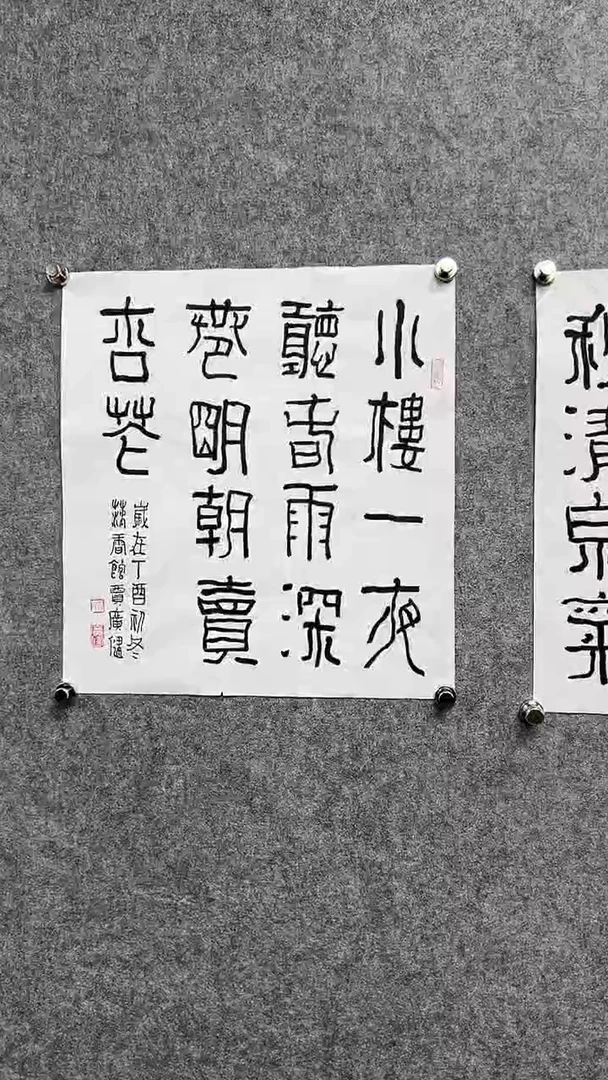 小樓一夜
聽春雨深
巷明朝賣
杏花
歲在丁酉初冬
香館賈廣健
清